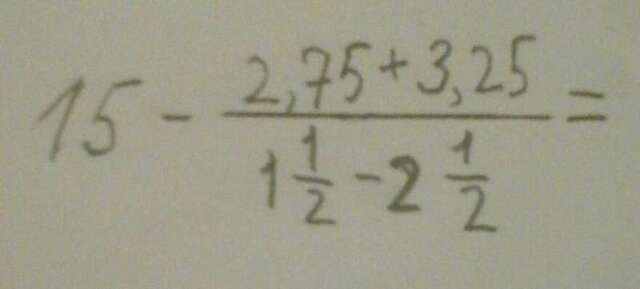 15 - \frac{2,75+3,25}{1\frac{1}{2}-2\frac{1}{2}} =